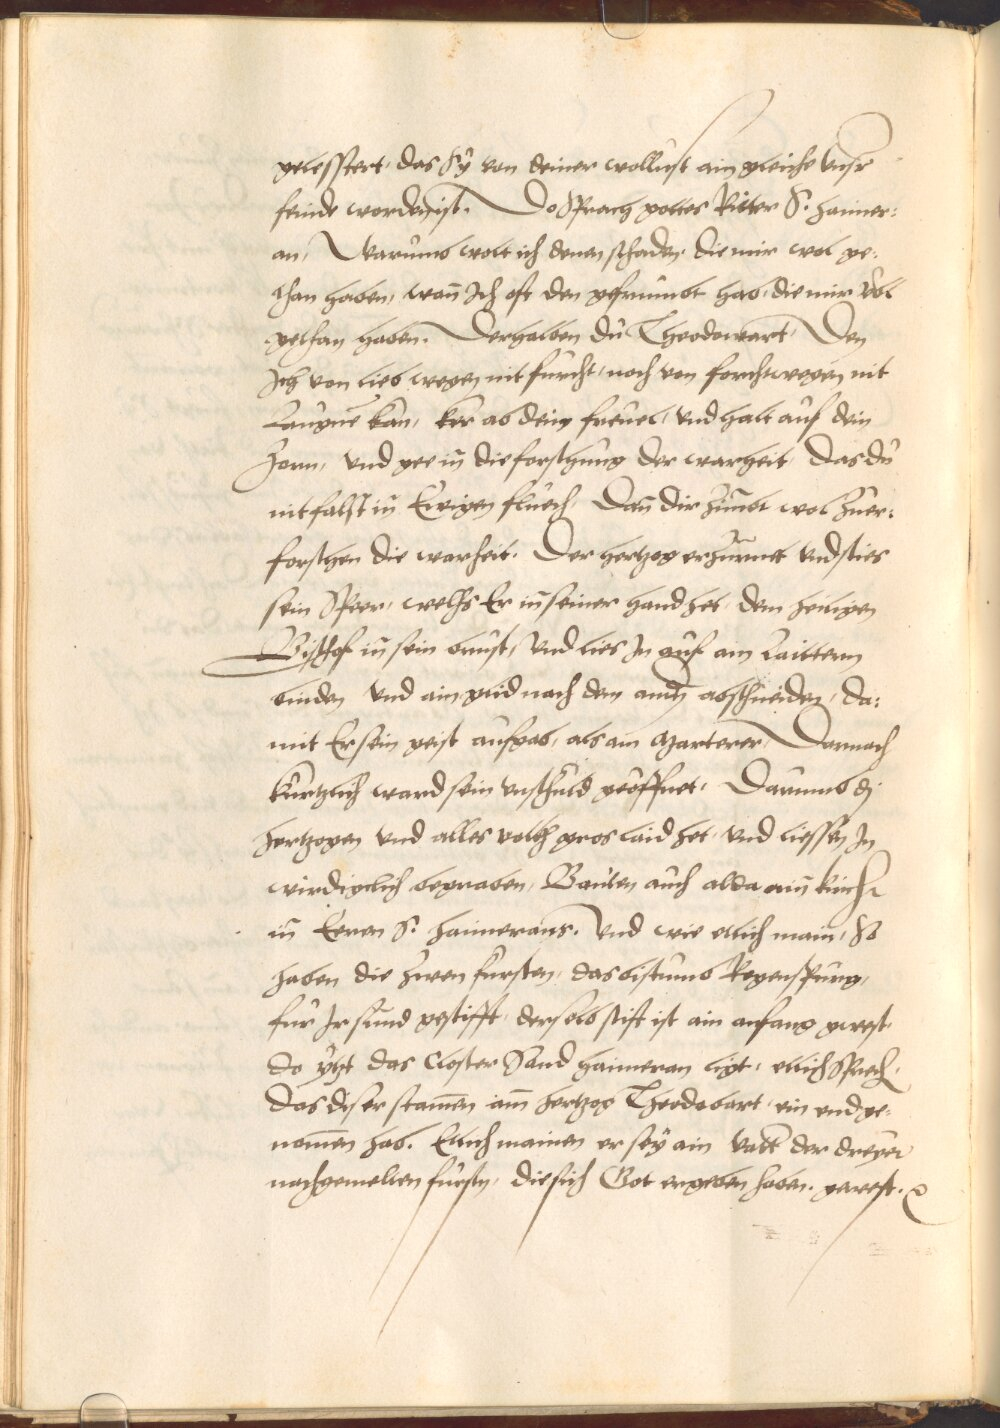 gelesstert, das Sÿ von deiner wollust ain gleiche vnser
feinde worden ist. Do Sprach gottes Ritter S. Haimer=
an, Warumb wolt ich denen schaden, die mir wol ge=
than haben, wañ Ich oft den gefrumbt hab, die mir Vbl
gethan haben. Derhalben du Theodowart, Den
Ich von lieb wegen nit furcht, noch von forcht wegen nit
Laugnē kan, ker ab dein freuel, vnd halt auf dein
Zorn, vnd gee in die forschung der warheit, Das du
nit falst in Ewigen fluech, Dañ dir Zimbt wol Zuer=
forschen die warheit. Der hertzog erzurnet vnd sties
sein Speer, welchs Er in seiner hand het, dem heiligen
Bischof in sein brust, vnd lies In auf ain Laittern
binden vnd ain glid nach dem andn̄ abschneiden, da=
mit Er sein geist aufgab, als ain Marterer, Dernach
kurtzlich ward sein vnschuld geöffnet. Darumb dj
Hertzogen vnd alles volkh gros laid het, vnd liessen In
wirdigclich begraben, Bauten auch alda ain kirchē
in Eeren S. Haimerans. Vnd wie etlich main, So
haben die Zwen fursten, das bistumb Regenspurg,
fur Ir sund gestifft, derselb stift ist ain anfang gwest,
do ÿtzt das Closter Sand Haimeran ligt, etlich Sprech,
Das diser stamen am Hertzog Theodobart, ein end ge=
nomen hab. Etlich mainen er seÿ ain Vatt der dreyer
nachgemelten fursten, die sich Got ergeben haben. gewest.